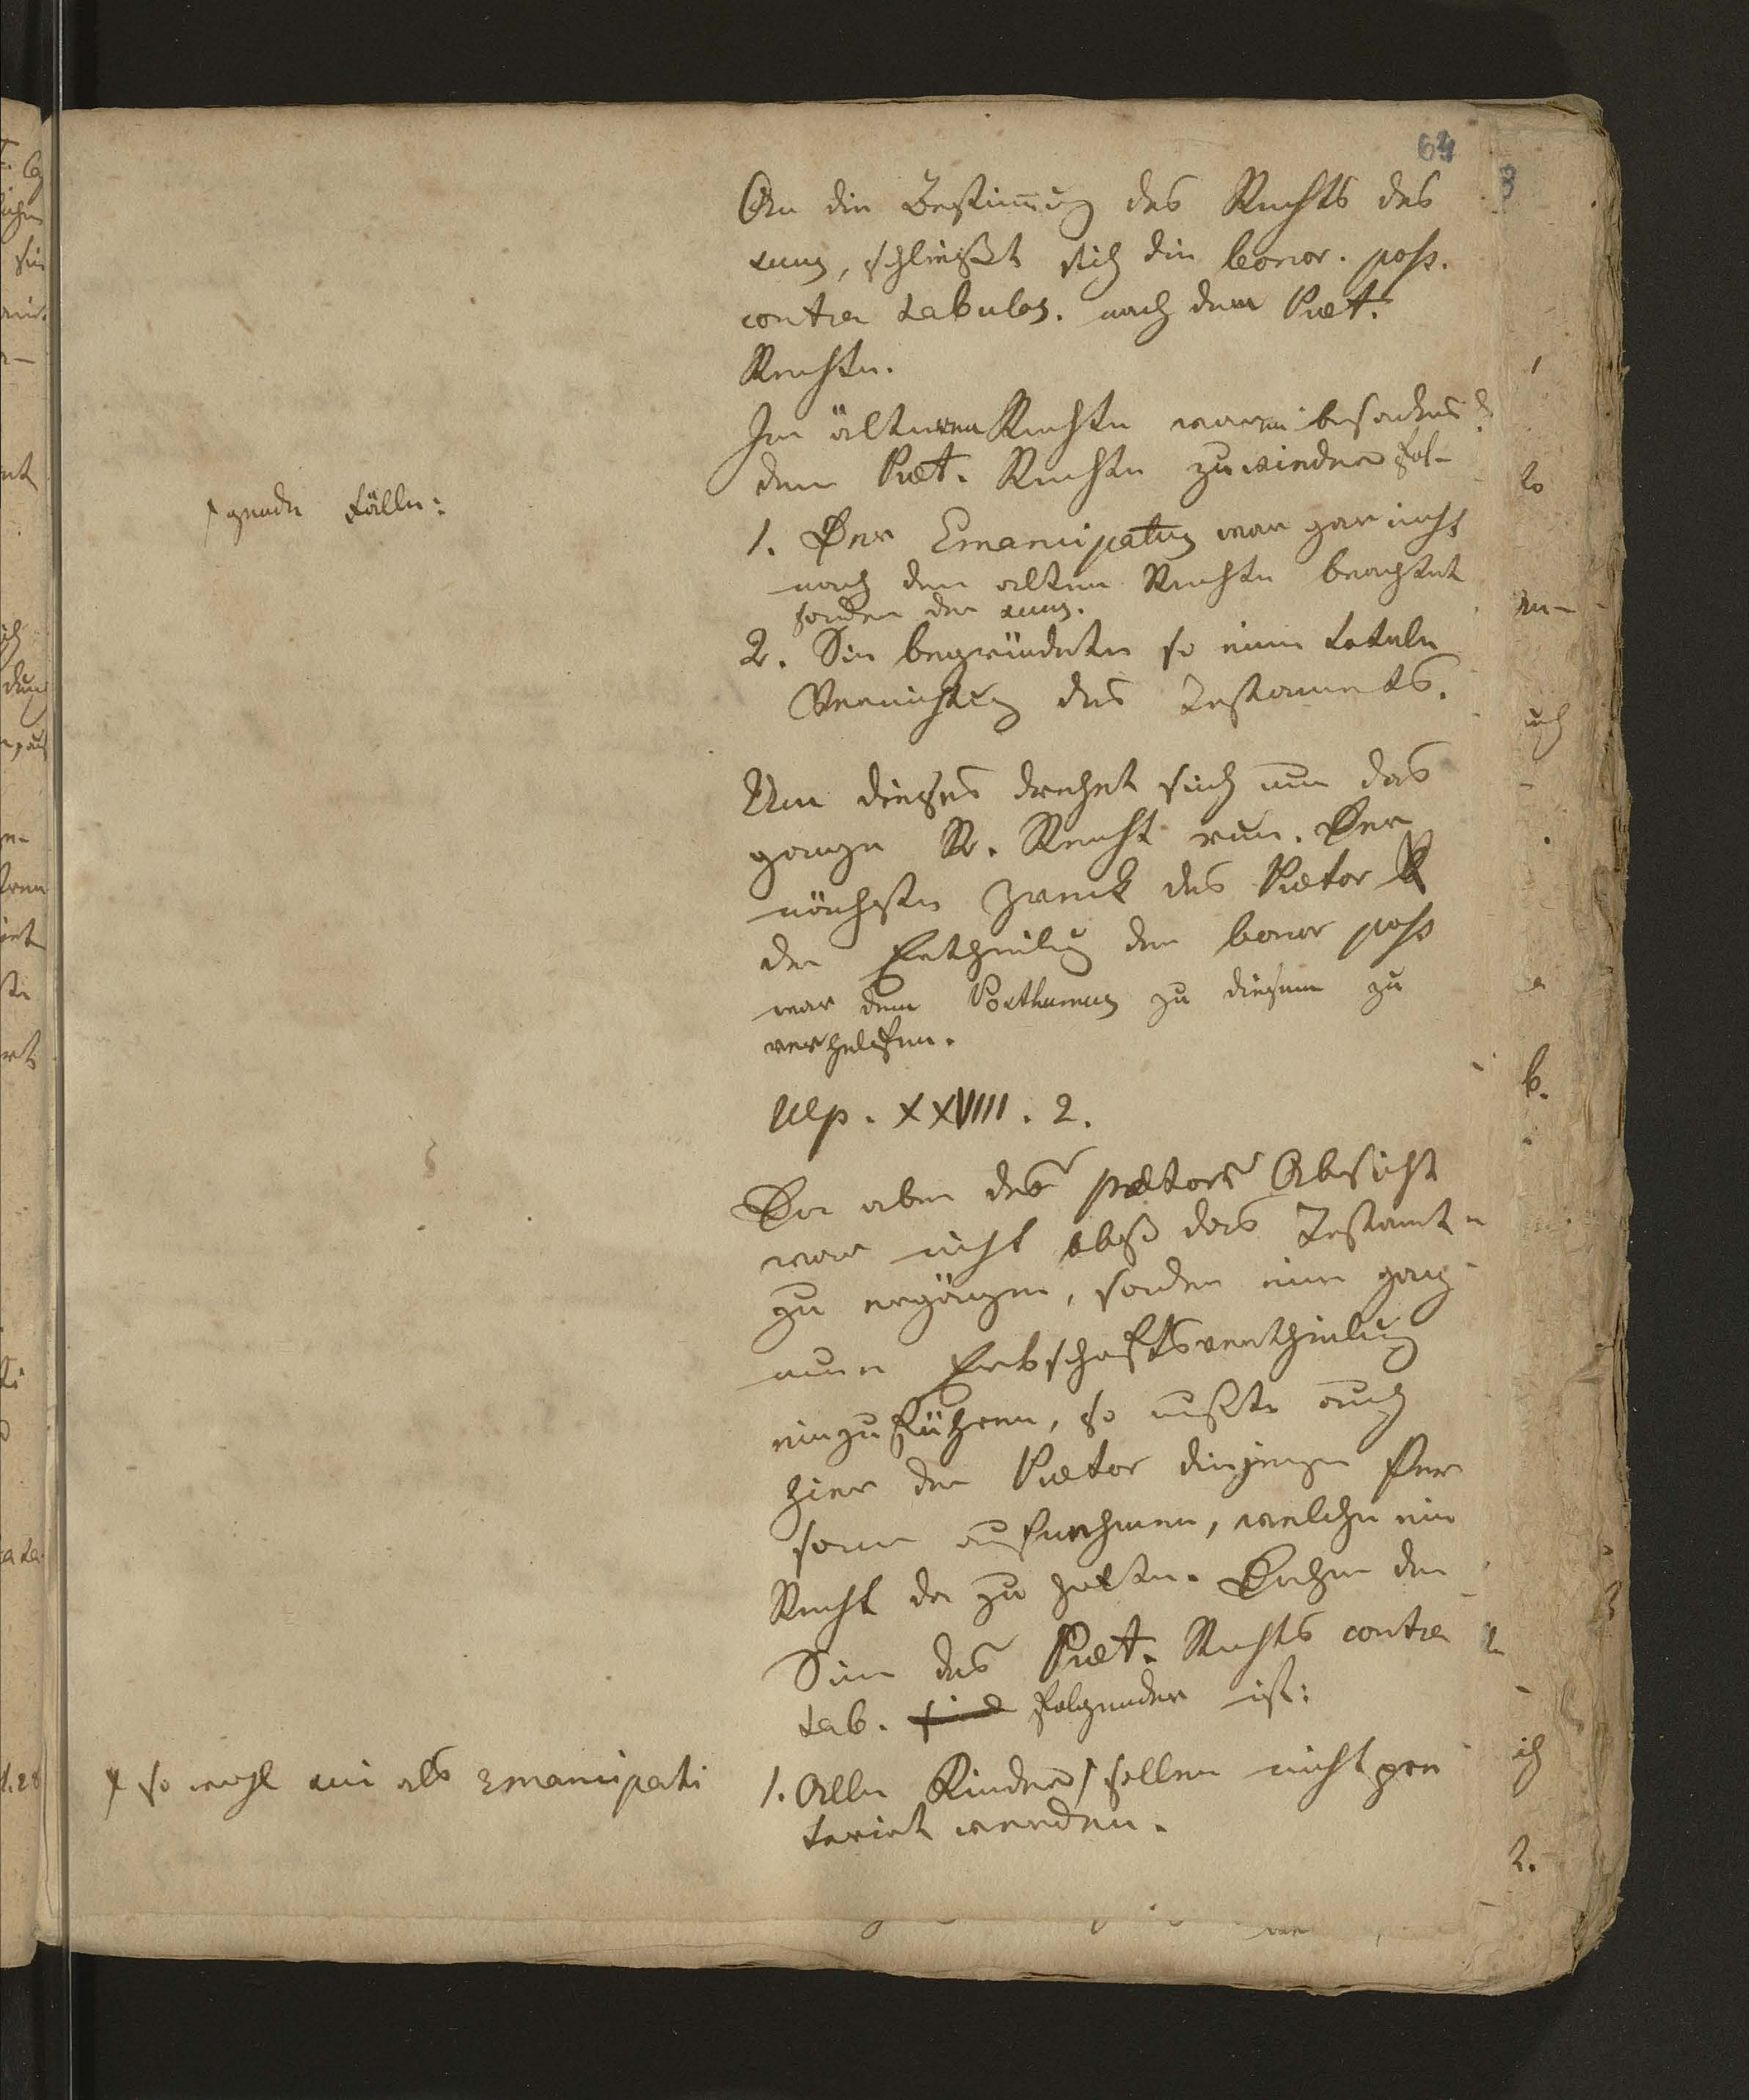 64
An die Bestim̄ung des Rechts des
suus, schließt sich die bonor. poss.
contra tabulas. nach dem Præt.
Rechte.
Im älteren Rechte waren besonders
dem Præt. Rechte zuwieder fol-
gende Fälle:
1. Der Emancipatus war gar nicht
nach dem alten Rechte beachtet
sondern der suus.
2. Sie begründete so eine totale
Vernichtung des Testaments.
Um dieses drehet sich nun das
ganze R. Recht rum. Der
nächste Zweck des Prætor
der Ertheilung der bonor poss
war dem Posthumus zu diesem zu
verhelfen.
Ulp. XXVIII. 2.
Da aber des prætors Absicht
war nicht blos das Testament
zu ergänzen, sondern eine ganz
neue Erbschaftsvertheilung
einzuführen, so mußte auch
hier der Prætor diejenigen Per
sonen aufnehmen, welche ein
Recht da zu hatten. Daher der
Sinn des Præt. Rechts contra
tab. sind folgender ist:
1. Alle Kinder sollen nicht præ
terirt werden.
so wohl sui als Emancipati